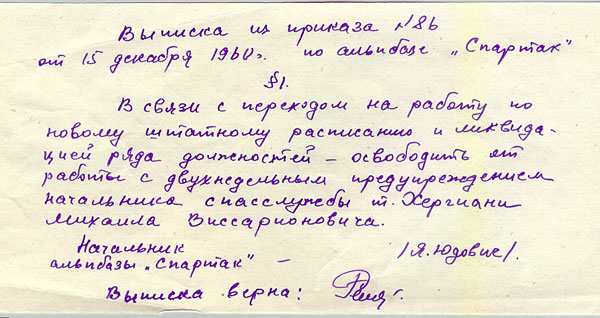 Выписка из приказа №86
от 15 декабря 1960г. по альпбазе „Спартак“
§1.
В связи с переходом на работу по
новому штатному расписанию и ликвида-
цией ряда должностей – освободить от
работы с двухнедельным предупреждением
начальника спасслужбы т. Хергиани
Михаила Виссарионовича.
Начальник
альпбазы „Спартак“ – /Я. Юдовис/.
Выписка верна: